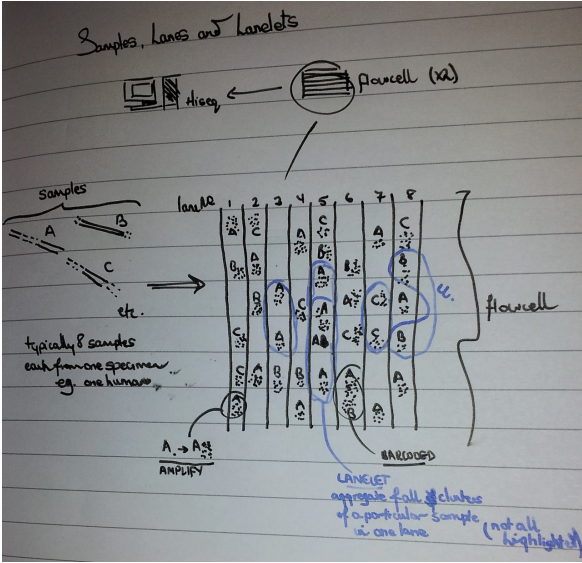 Samples, Lanes and Lanelets
flowcell (x2)
Hiseq
samples
A
B
C
etc.
typically 8 samples
each from one specimen
eg. one human
lane
1 2 3 4 5 6 7 8
A C A C A C
B A B B
B A C A A C A
C A A C C B
C A B B A A A
A A B A
flowcell
A. → A
AMPLIFY
BARCODED
LANELET
aggregate of all clusters
of a particular sample
in one lane
(not all
highlighted)